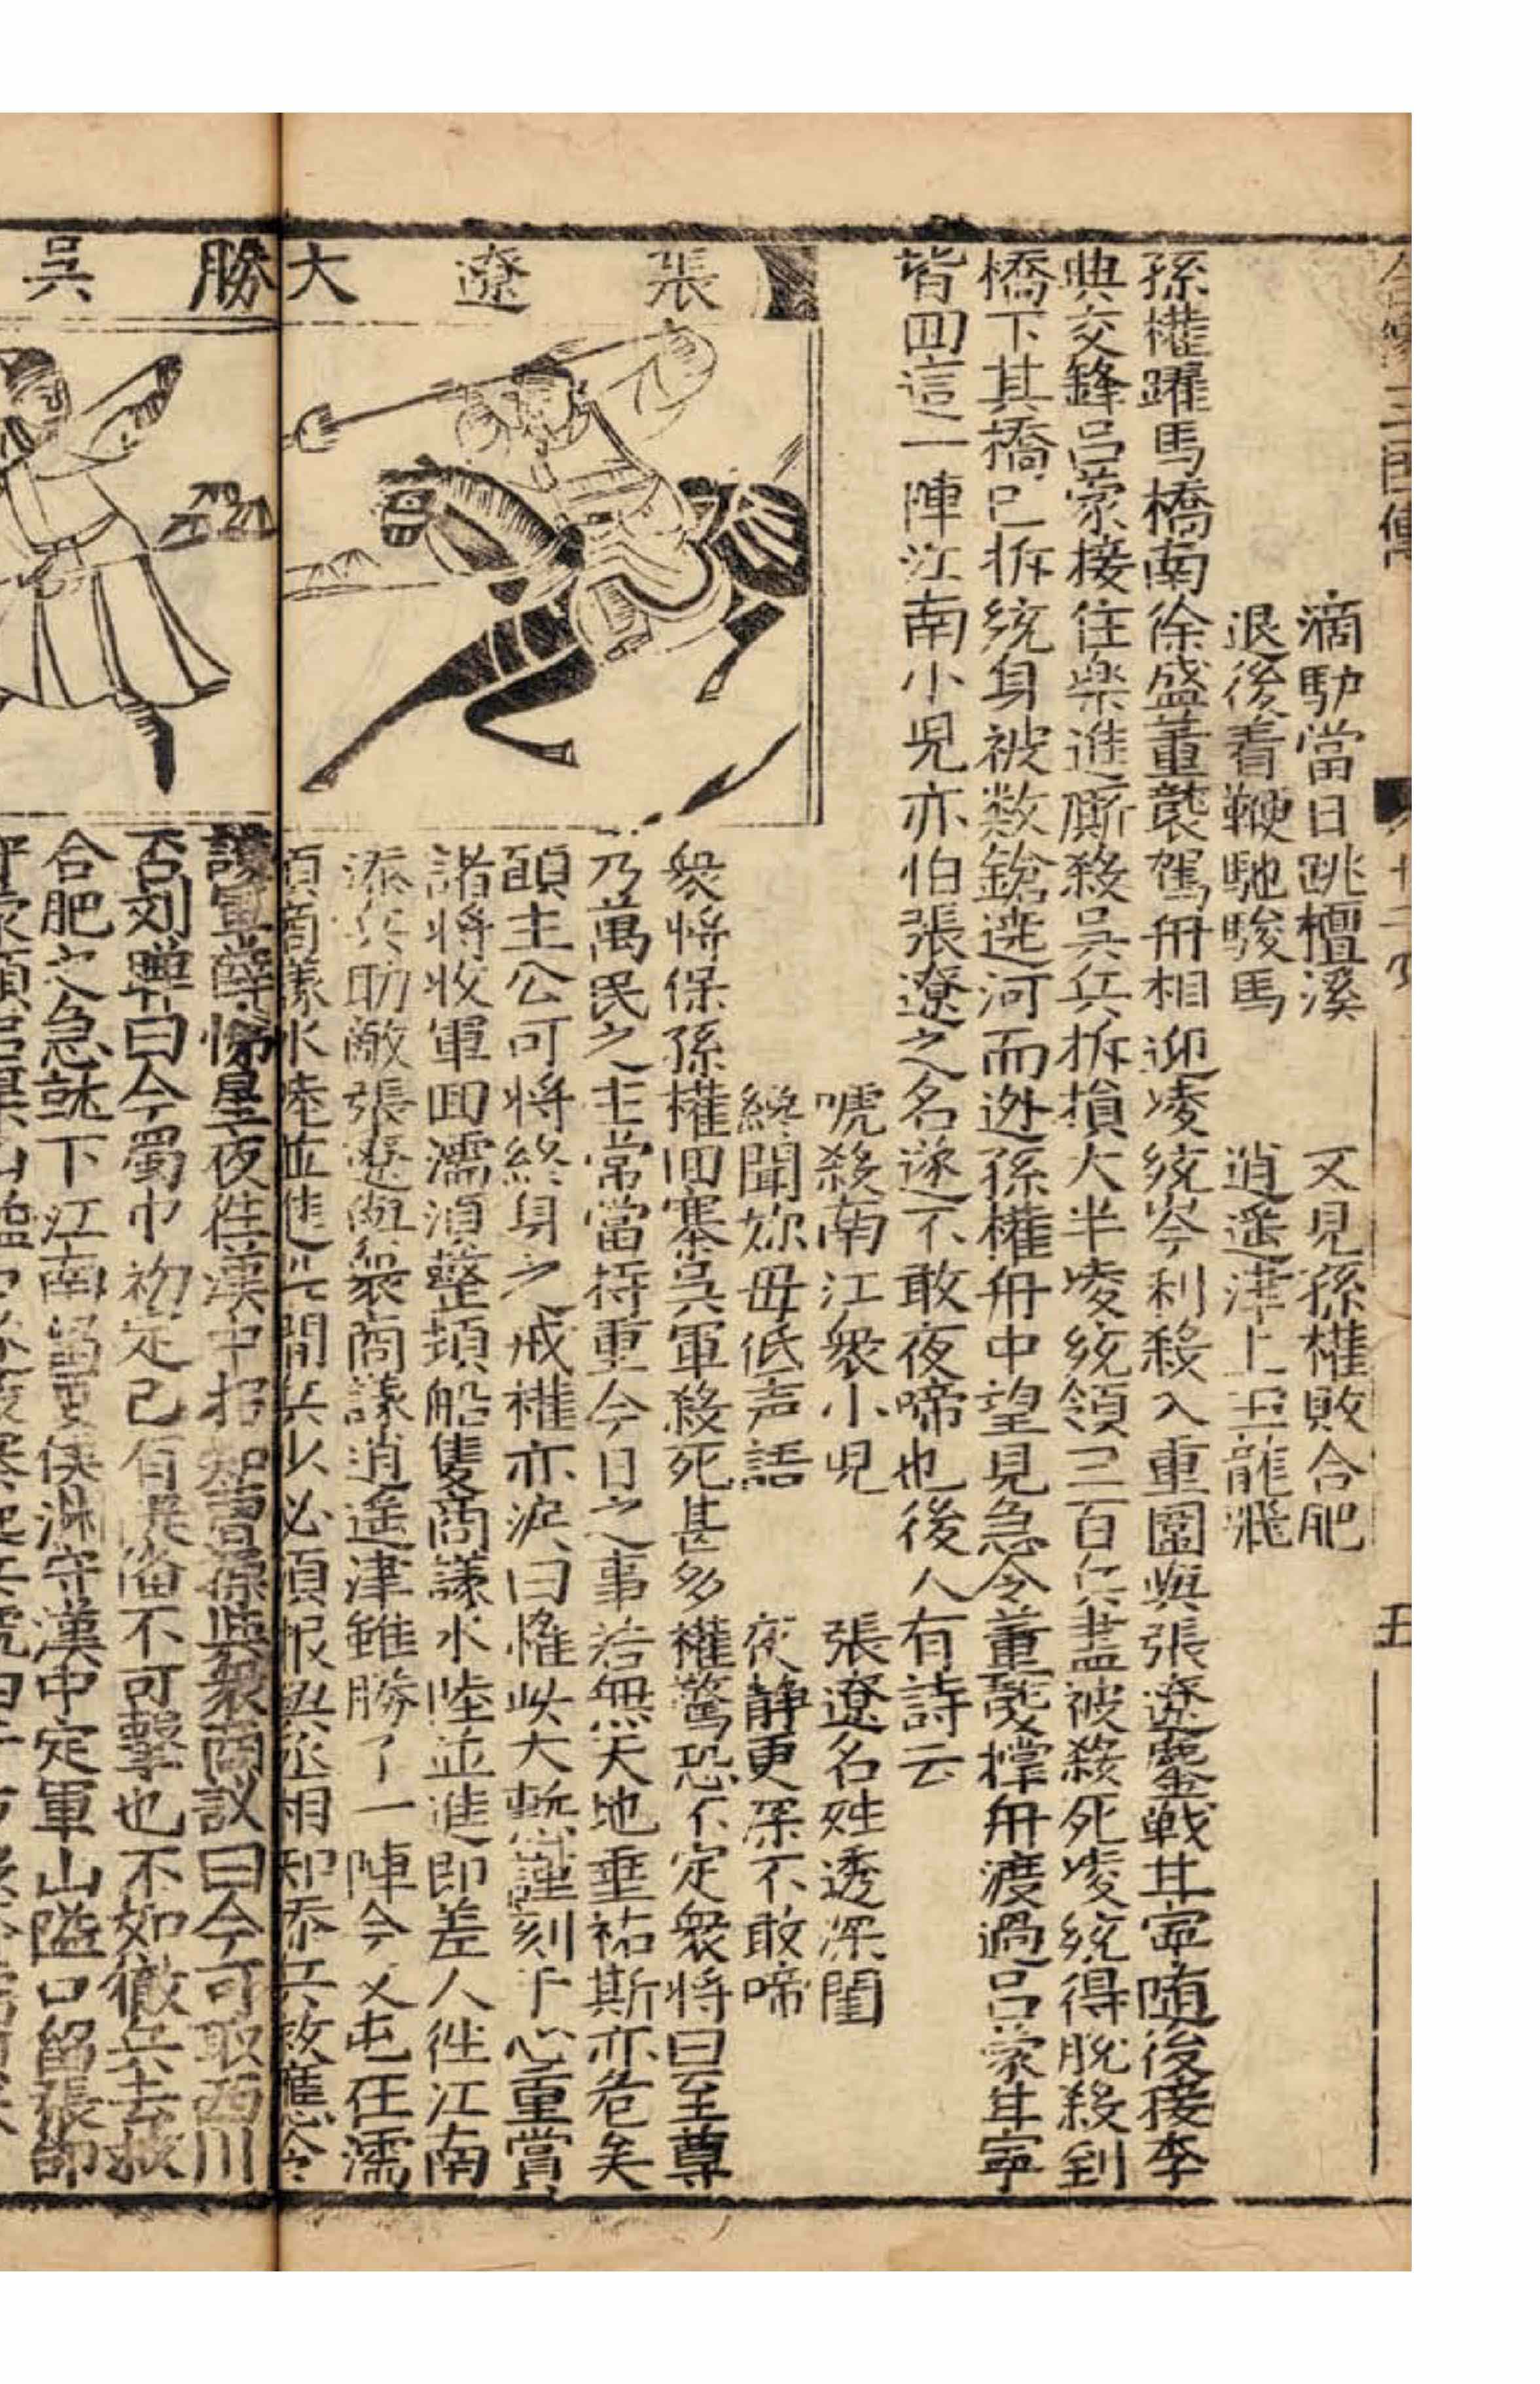 滴馿當日跳檀溪　又見孫權敗合肥
退後着鞭馳駿馬　逍遥津上玉龍飛
孫權躍馬橋南徐盛董襲駕舟相迎凌統谷利殺入重圍與張遼鏖戰甘寧随後接李
典交鋒吕蒙接住樂進厮殺吳兵折損大半凌統領三百兵盡被殺死凌統得脫殺到
橋下其橋已拆統身被数鎗遶河而迯孫權舟中望見急令董襲撑舟渡過吕蒙甘寧
皆囬這一陣江南小児亦怕張遼之名遂不敢夜啼也後人有詩云
唬殺南江衆小児　張遼名姓透深閨
終聞妳毋低声語　夜静更深不敢啼
張遼大勝吳
衆將保孫權囬寨吳軍殺死甚多權驚恐不定衆將曰至尊
乃萬民之主常當持重今日之事若無天地垂祐斯亦危矣
頋主公可將終身之戒權亦淚曰惟此大慙謹刻于心重賞
諸將收軍囬濡湏整頓船隻商議水陸並進即差人徃江南
添兵助敵張遼與衆商議逍遥津雖勝了一陣今又屯在濡
湏商議水陸並進此間兵少必須報與丞相知添兵救應令
薛悌星夜徃漢中招知曹操與衆商議曰今可取西川
否刘曄曰今蜀中初定已有提俻不可擊也不如徹兵去救
合肥之急就下江南留夏侯渊守漢中定軍山隘口留張郃